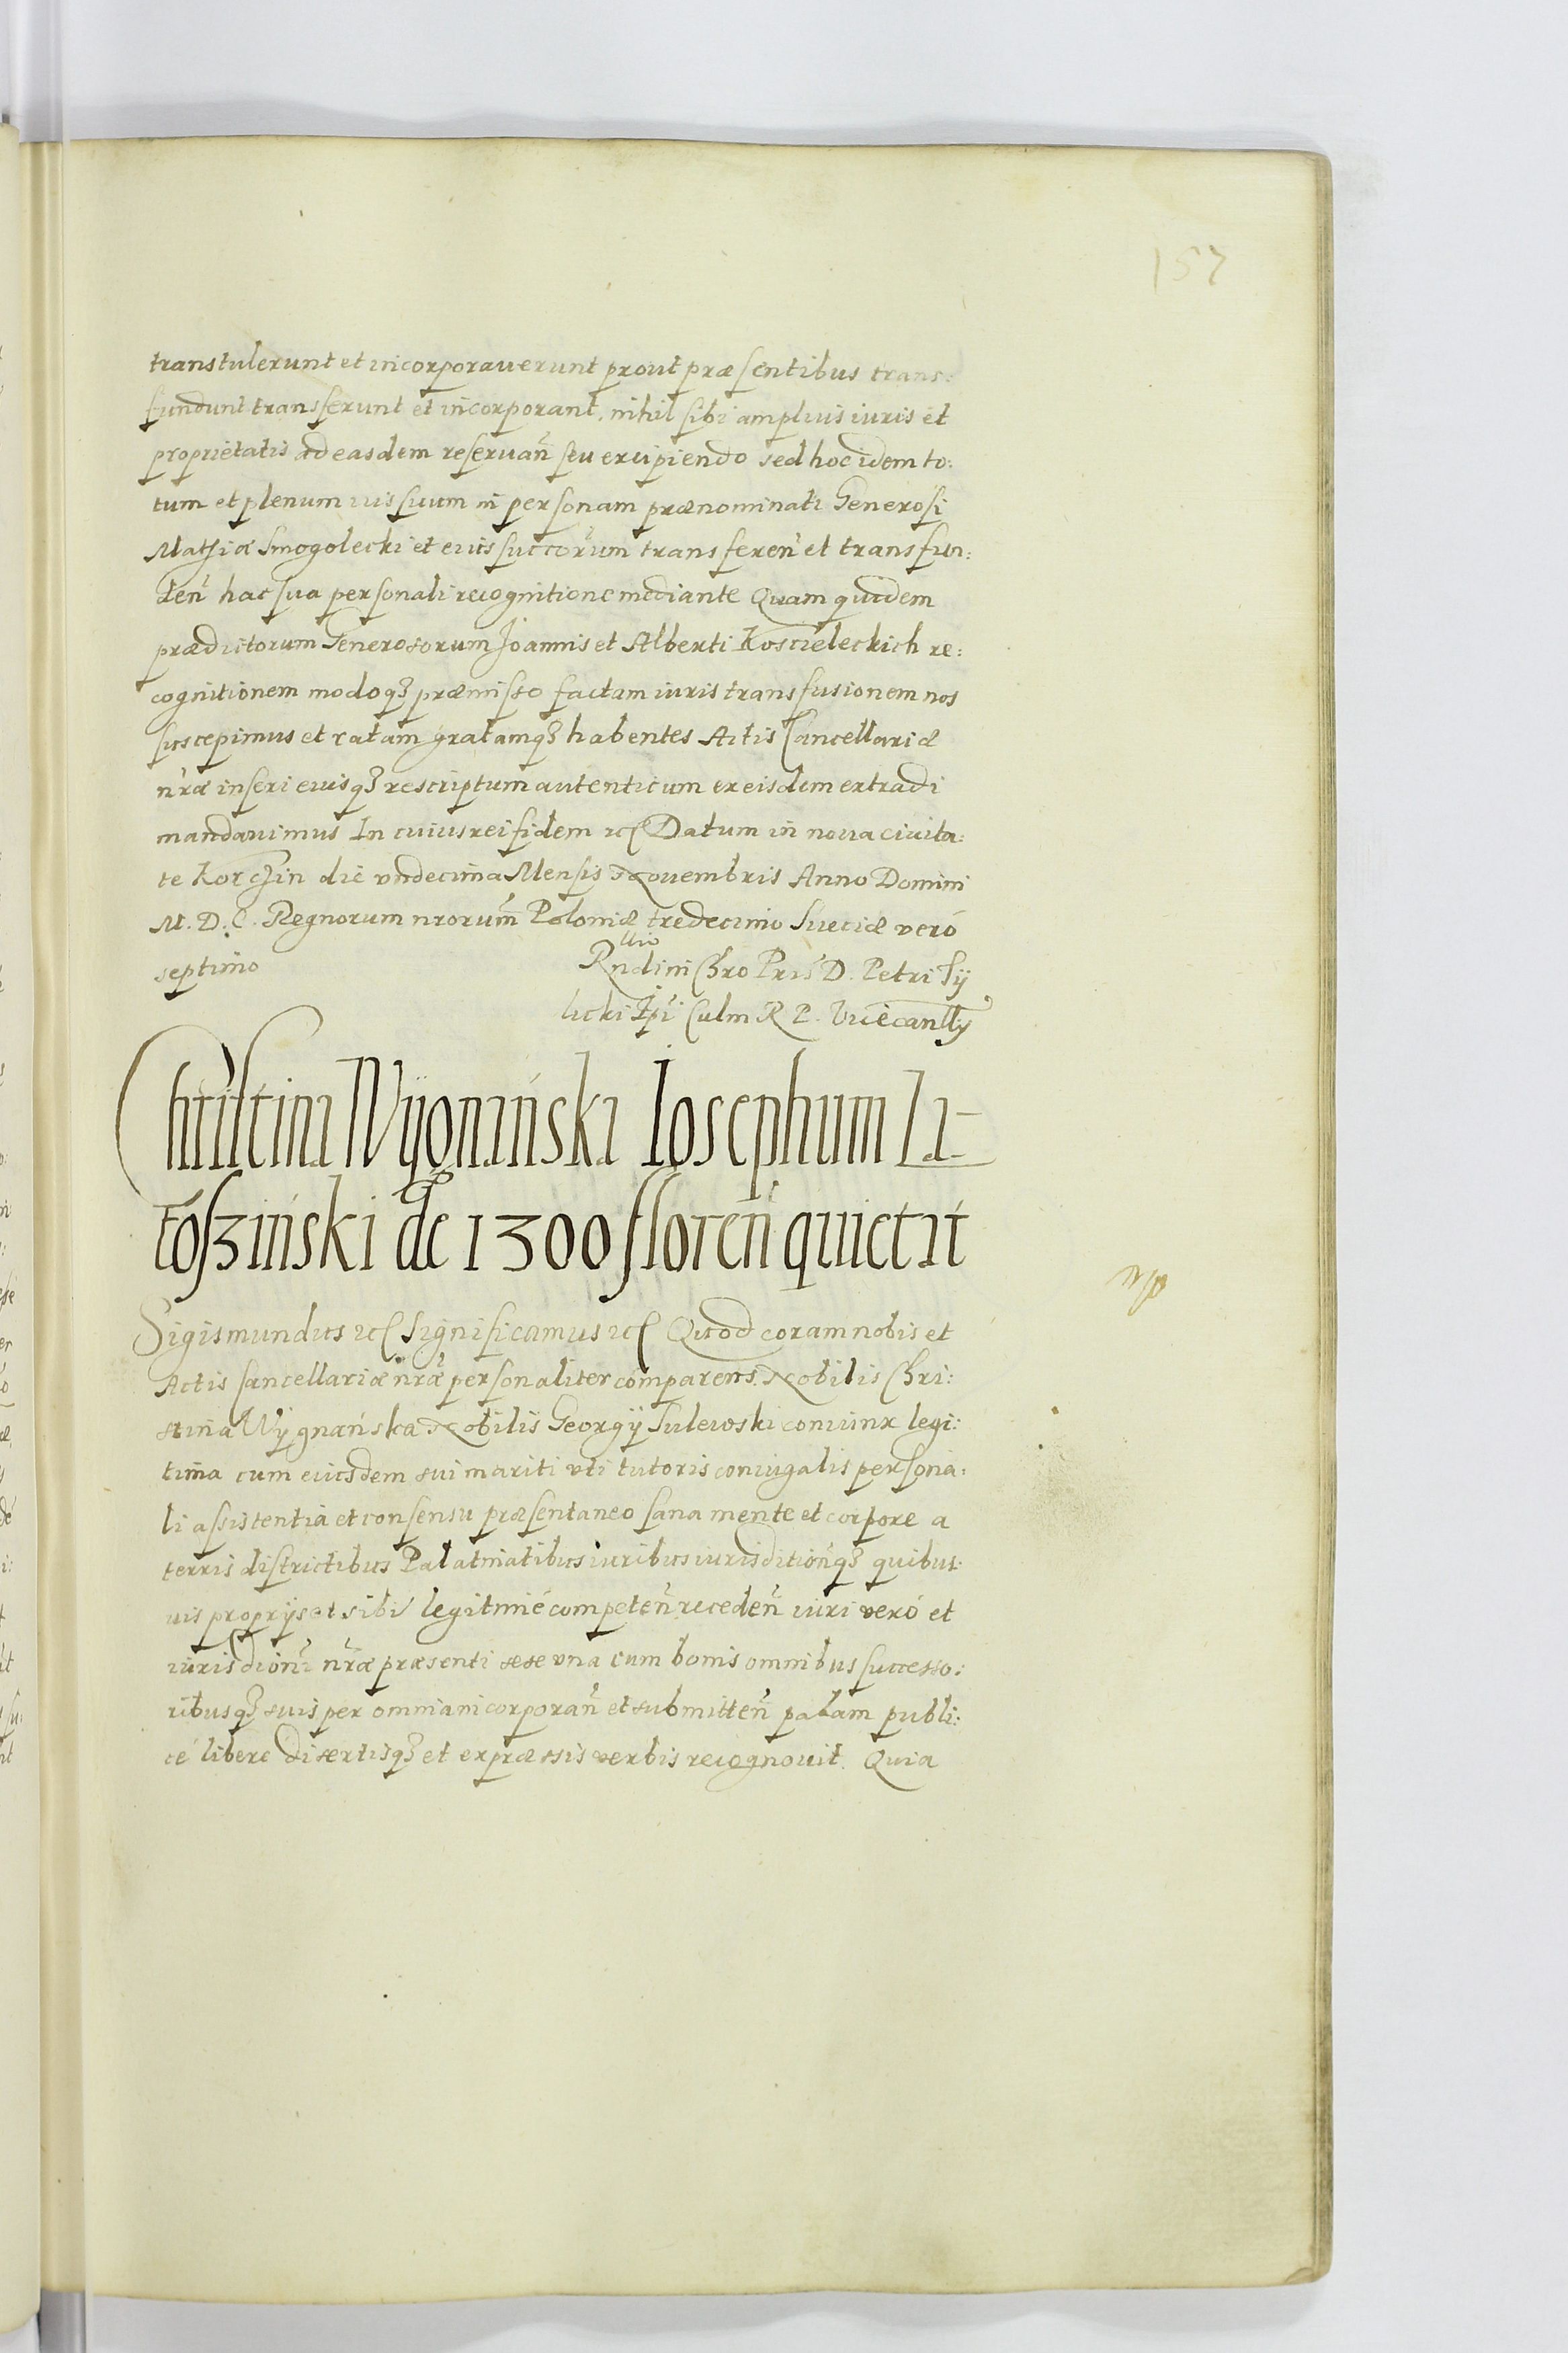 157
transtulerunt et incorporauerunt prout præsentibus trans:
fundunt transferunt et incorporant, nihil sibi amplius iuris et
proprietatis ad easdem reseruan̄ seu excipiendo sed hoc idem to:
tum et plenum ius suum in personam prænominati Generosi
Mathiæ Smogolecki et eius succorum transferen̄ et transfun:
den̄ hac sua personali recognitione mediante Quam quidem
prædictorum Generosorum Joannis et Alberti Koscieleckich re:
cognitionem modoq3 præmisso factam iuris transfusionem nos
suscepimus et ratam gratamq3 habentes Actis Cancellariæ
nræ inseri eiusq3 rescriptum autenticum ex eisdem extradi
mandauimus In cuius rei fidem etc Datum in noua ciuita:
te Korczin die vndecima Mensis Nouembris Anno Domini
M. D. C. Regnorum nrorum Poloniæ tredecimo Sueciæ veró
septimo
Rndini Chro Pris D. Petri Tÿ
licki Epi Culm R P. Vicecanllÿ
Christini Wÿgniński Iosephum La-
toszinski de 1300 floren̄ quietat
Sigismundus etc Significamus etc Quod coram nobis et
Actis Cancellariæ nræ personaliter comparens Nobilis Chri:
stina Wÿgnańska Nobilis Georgÿ Sulewski coniunx legi:
tima cum eiusdem sui mariti vti tutoris coniugalis persona:
li assistentia et consensu præsentaneo sana mente et corpore a
terris districtibus Palatinatibus iuribus iurisdition̄q3 quibus:
uis proprÿs et sibi legitimé competen̄ receden̄ iuri veró et
iurisdioni nræ præsenti sese vna cum bonis omnibus successo:
ribusq3 suis per omnia incorporan̄ et submitten̄ palam publi:
cé libere disertisq3 et expræssis verbis recognouit. Quia